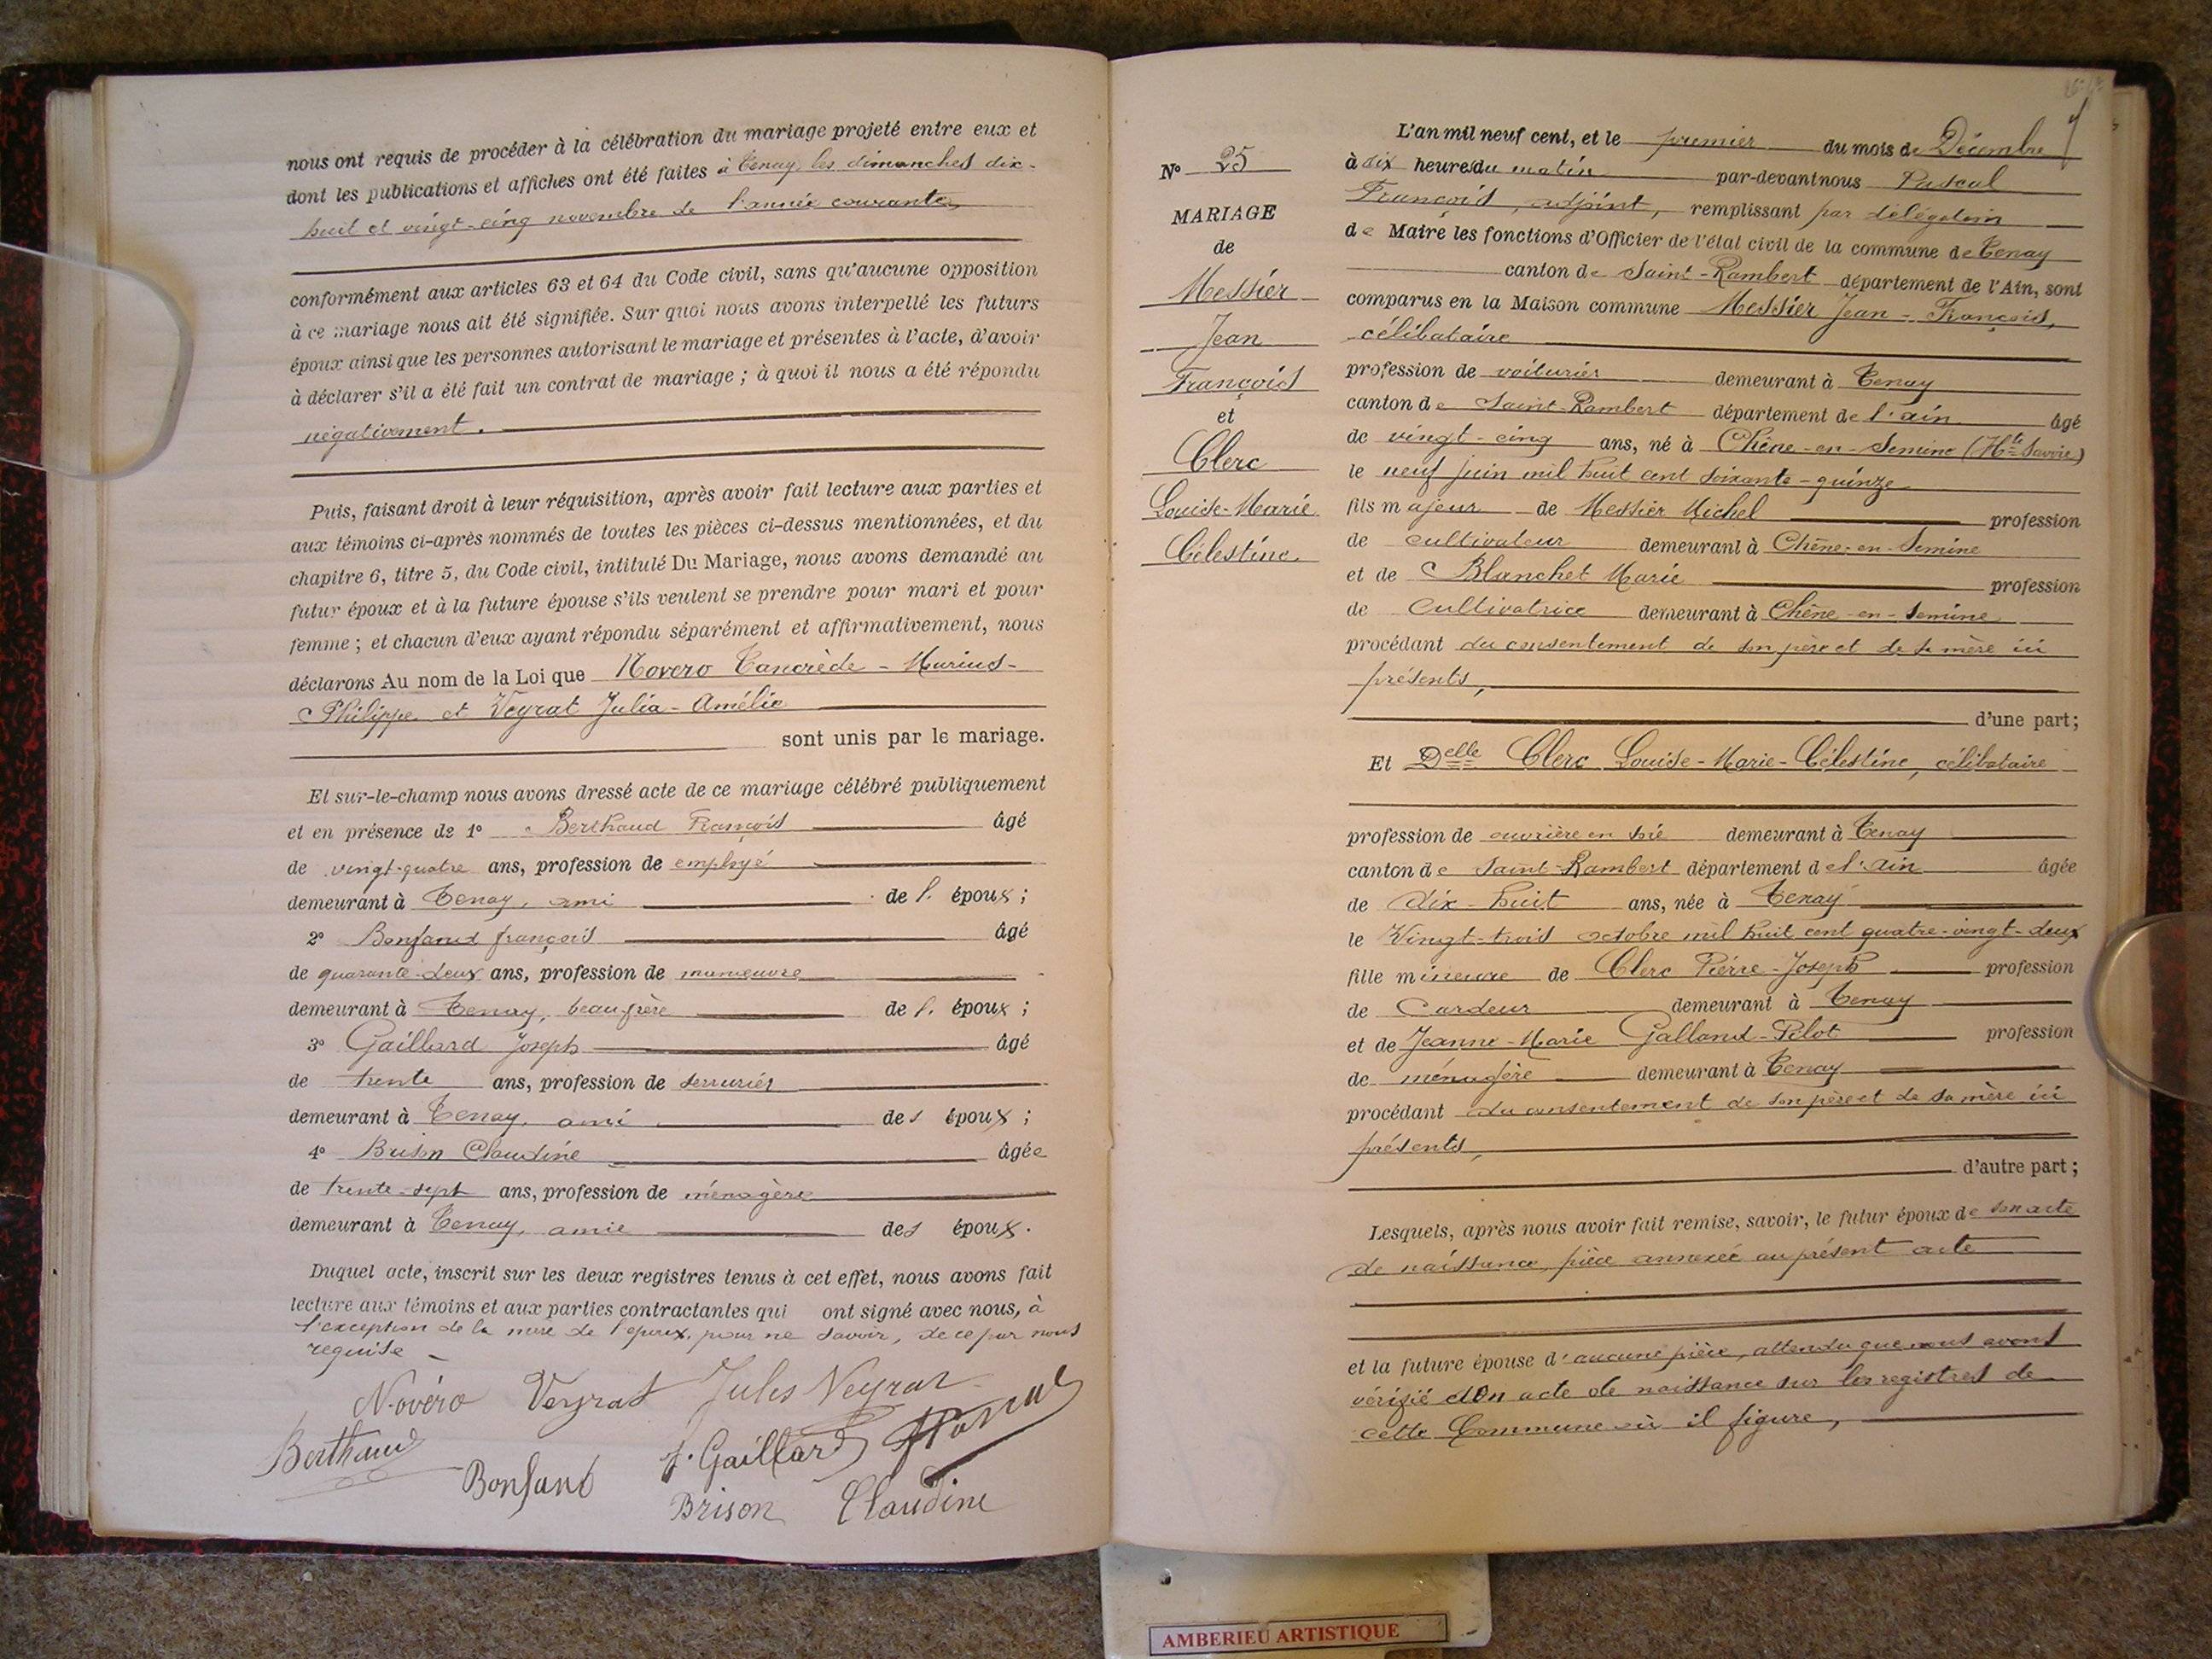 nous ont requis de procéder à la célébration du mariage projeté entre eux et
dont les publications et affiches ont été faites à Tenay les dimanches dix-
huit et vingt-cinq novembre de l'année courante,
conformément aux articles 63 et 64 du Code civil, sans qu'aucune opposition
à ce mariage nous ait été signifiée. Sur quoi nous avons interpellé les futurs
époux ainsi que les personnes autorisant le mariage et présentes à l'acte, d'avoir
à déclarer s'il a été fait un contrat de mariage ; à quoi il nous a été répondu
négativement.
Puis, faisant droit à leur réquisition, après avoir fait lecture aux parties et
aux témoins ci-après nommés de toutes les pièces ci-dessus mentionnées, et du
chapitre 6, titre 5, du Code civil, intitulé Du Mariage, nous avons demandé au
futur époux et à la future épouse s'ils veulent se prendre pour mari et pour
femme ; et chacun d'eux ayant répondu séparément et affirmativement, nous
déclarons Au nom de la Loi que Novero Tancrède - Marius -
Philippe et Veyrat Julia - Amélie
sont unis par le mariage.
Et sur-le-champ nous avons dressé acte de ce mariage célébré publiquement
et en présence de 1° Berthaud François âgé
de vingt-quatre ans, profession de employé
demeurant à Tenay, ami de l. époux ;
2° Bonfand françois âgé
de quarante-deux ans, profession de manœuvre
demeurant à Tenay, beau-frère de l. époux ;
3° Gaillard Joseph âgé
de trente ans, profession de serrurier
demeurant à Tenay, ami des époux ;
4° Brison Claudine âgée
de trente-sept ans, profession de ménagère
demeurant à Tenay, amie des époux.
Duquel acte, inscrit sur les deux registres tenus à cet effet, nous avons fait
lecture aux témoins et aux parties contractantes qui ont signé avec nous, à
l'exception de la mère de l'époux, pour ne savoir, de ce par nous
requise
Novéro Veyrat Jules Veyrat
Berthaud J. Gaillard
Bonfand Brison Claudine
N° 25
MARIAGE
de
Messier
Jean
François
et
Clerc
Louise-Marie
Célestine
L'an mil neuf cent, et le premier du mois de Décembre
à dix heures du matin par-devant nous Pascal
François, adjoint, remplissant par délégation
de Maire les fonctions d'Officier de l'état civil de la commune de Tenay
canton de Saint-Rambert département de l'Ain, sont
comparus en la Maison commune Messier Jean-François,
célibataire
profession de voiturier demeurant à Tenay
canton de Saint-Rambert département de l'ain âgé
de vingt-cinq ans, né à Chêne-en-Semine (Hte Savoie)
le neuf juin mil huit cent soixante-quinze
fils majeur de Messier Michel profession
de cultivateur demeurant à Chêne-en-Semine
et de Blanchet Marie profession
de cultivatrice demeurant à Chêne-en-Semine
procédant du consentement de son père et de sa mère ici
présents,
d'une part;
Et Delle Clerc Louise-Marie-Célestine, célibataire
profession de ouvrière en soie demeurant à Tenay
canton de Saint-Rambert département de l'ain âgée
de dix-huit ans, née à Tenay
le Vingt-trois octobre mil huit cent quatre-vingt-deux
fille mineure de Clerc Pierre-Joseph profession
de Cardeur demeurant à Tenay
et de Jeanne-Marie Galland-Pilot profession
de ménagère demeurant à Tenay
procédant du consentement de son père et de sa mère ici
présents,
d'autre part ;
Lesquels, après nous avoir fait remise, savoir, le futur époux de son acte
de naissance, pièce annexée au présent acte
et la future épouse d'aucune pièce, attendu que nous avons
vérifié son acte de naissance sur les registres de
cette Commune où il figure,
AMBERIEU ARTISTIQUE